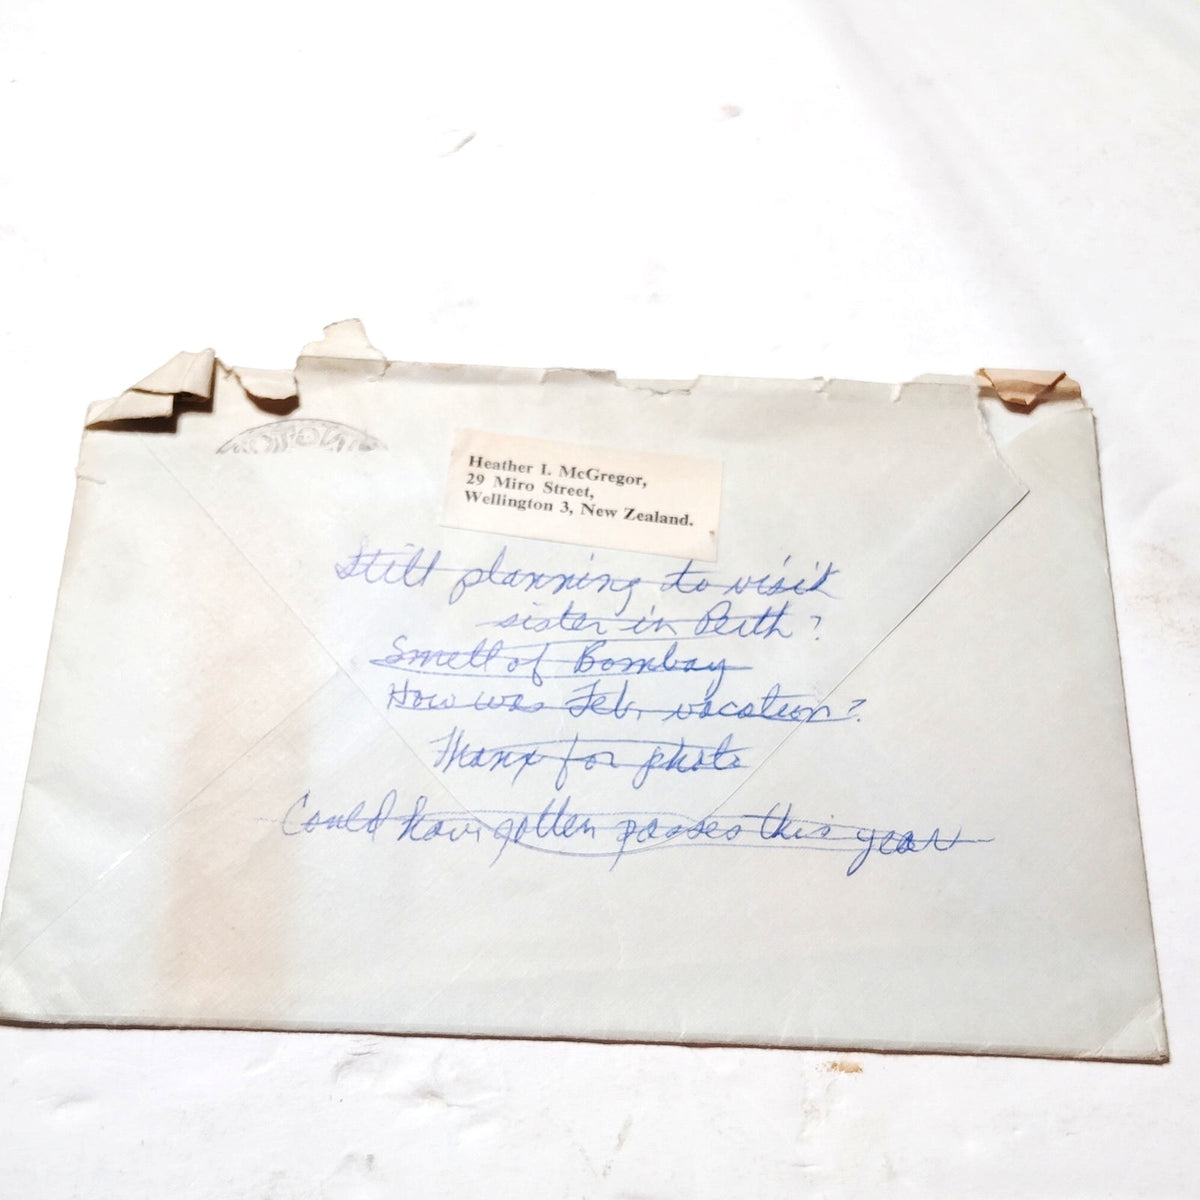 Heather I. McGregor,
29 Miro Street,
Wellington 3, New Zealand.
Still planning to visit
sister in Perth?
Smell of Bombay
How was Feb. vacation?
Thanx for photo
Could have gotten passes this year